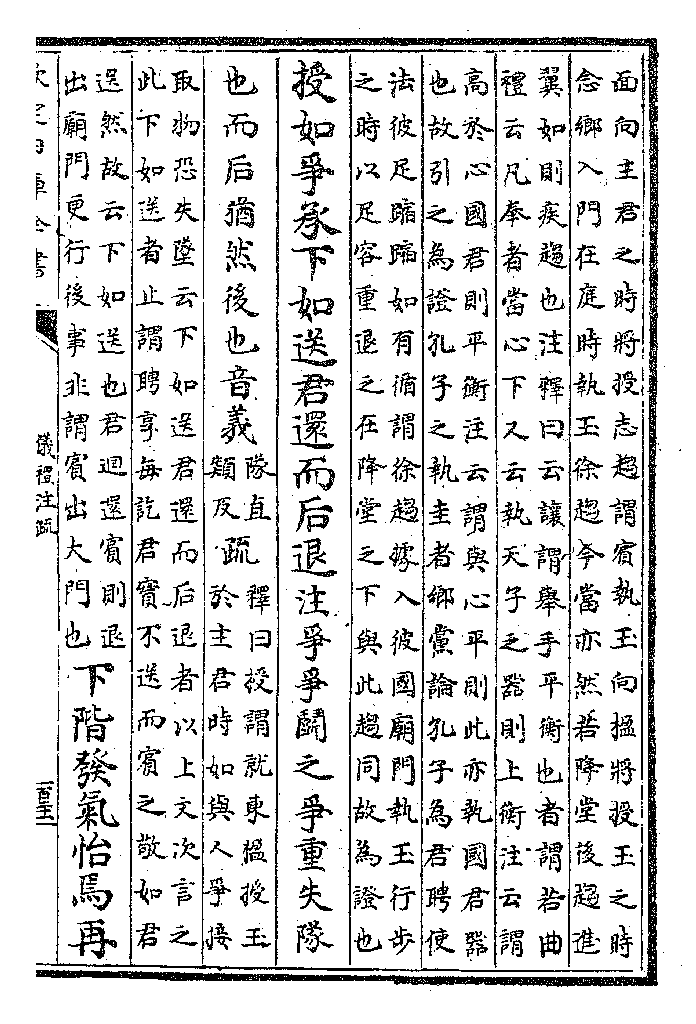 面向主君之時將授志趨謂賓執玉向楹將授玉之時
念鄉入門在庭時執玉徐趨今當亦然若降堂後趨進
翼如則疾趨也注釋曰云讓謂舉手平衡也者謂若曲
禮云凡奉者當心下又云執天子之器則上衡注云謂
高於心國君則平衡注云謂與心平則此亦執國君器
也故引之為證孔子之執圭者鄉黨論孔子為君聘使
法彼足蹜蹜如有循謂徐趨據入彼國廟門執玉行步
之時以足容重退之在降堂之下與此趨同故為證也
授如爭承下如送君還而后退注爭爭鬭之爭重失隊
也而后猶然後也音義隊直類反疏釋曰授謂就東楹授玉
於主君時如與人爭接
取物恐失墜云下如送君還而后退者以上文次言之
此下如送者止謂聘享每訖君實不送而賓之敬如君
送然故云下如送也君迴還賓則退
出廟門更行後事非謂賓出大門也下階發氣怡焉再
欽定四庫全書
儀禮注疏